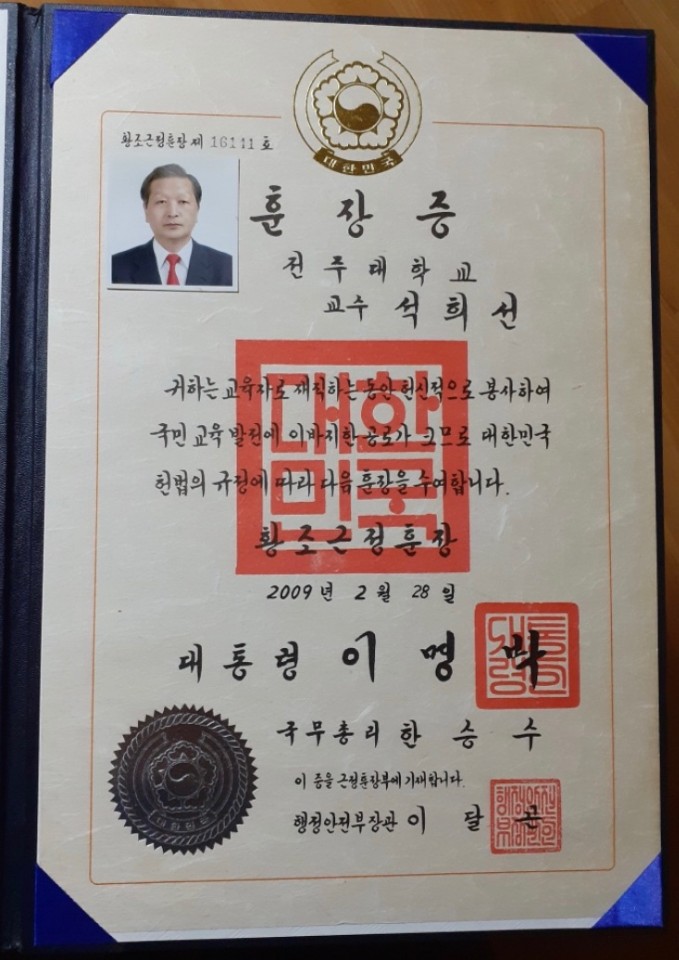 대한민국
황조근정훈장 제 16111 호
훈 장 증
전 주 대 학 교
교수 석 희 선
귀하는 교육자로 재직하는 동안 헌신적으로 봉사하여
국민 교육 발전에 이바지한 공로가 크므로 대한민국
헌법의 규정에 따라 다음 훈장을 수여합니다.
대한
민국
황 조 근 정 훈 장
2009 년 2 월 28 일
대 통 령 이 명 박
대통
령의
국 무 총 리 한 승 수
대한민국
이 증을 근정훈장부에 기재합니다.
행정안전부장관 이 달 곤
행정안전
부장관인